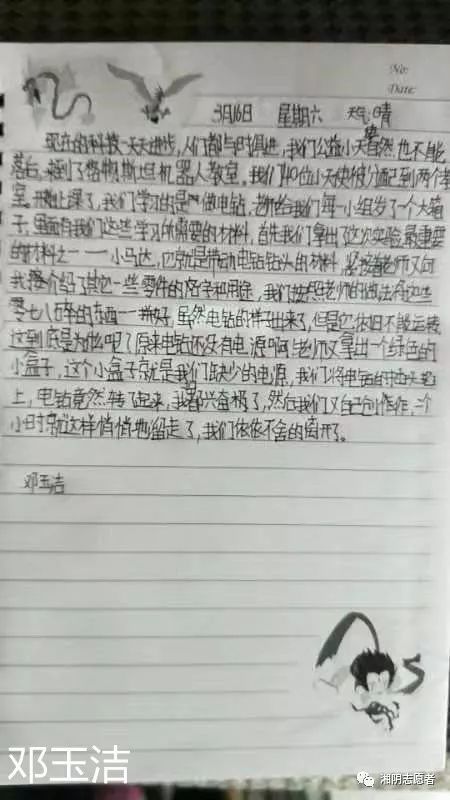 No:
Date:
3月16日 星期六 天气:晴
现在的科技一天天进步,人们都与时俱进,我们公益小天使自然也不能
落后,来到了格物斯坦机器人教室。我们40位小天使被分配到两个教
室,开始上课了,我们学习的是做电钻,老师给我们每一小组发了一个大箱
子,里面有我们这些学习所需要的材料,首先我们拿出了这次实验最重要
的材料之一——小马达,它就是带动电钻钻头的材料,紧接着老师又向
我们介绍了其它一些零件的名字和用途,我们按照老师的做法将这些
零七八碎的东西一一拼好,虽然电钻的样子出来了,但是它依旧不能运转
这到底是为什么呢?原来电钻还没有电源啊!老师又拿出一个绿色的
小盒子,这个小盒子就是我们缺少的电源,我们将电钻的插头
上,电钻竟然转了起来,我们都兴奋极了,然后我们又自己创作作,一个
小时就这样悄悄地溜走了,我们依依不舍的离开了。
邓玉洁
邓玉洁
湘阴志愿者